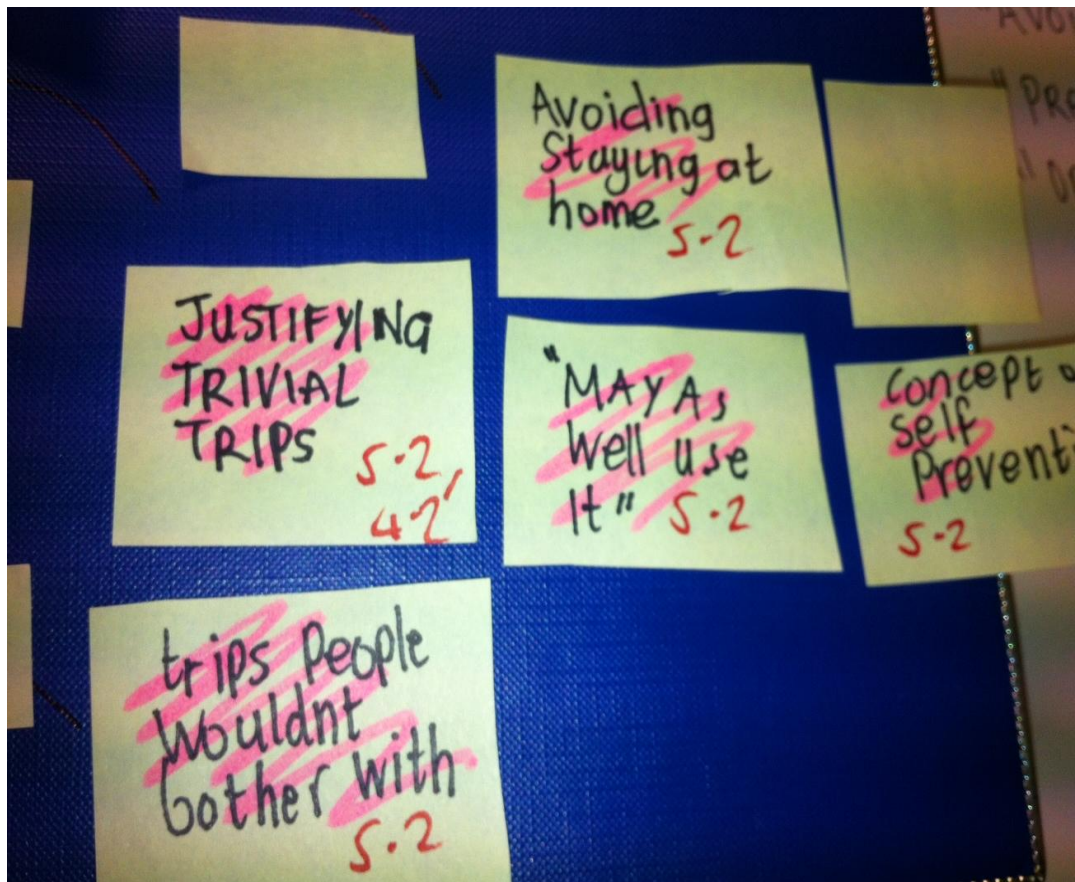 Avoiding
Staying at
home
5-2
JUSTIFYING
TRIVIAL
TRIPS
5-2,
4-2
"MAY As
Well use
It" 5-2
Concept
self
Preventi
5-2
trips People
Wouldnt
bother with
5-2
PRE